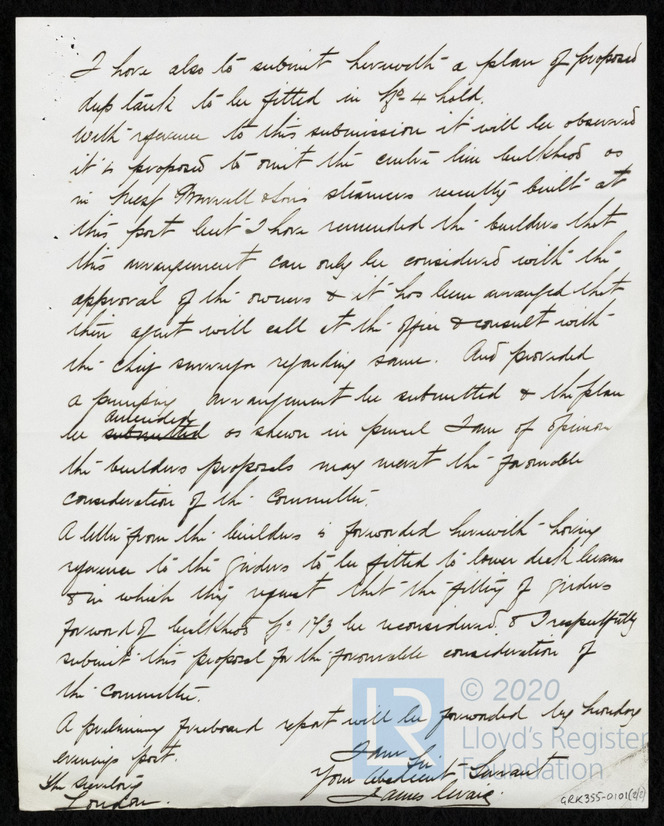 I have also to submit herewith a plan of proposed
deep tank to be fitted in No 4 hold.
With reference to this submission it will be observed
it is proposed to omit the centre line bulkhead as
in Messrs & Sons steamers recently built at
this port but I have reminded the builders that
this arrangement can only be considered with the
approval of the owners & it has been arranged that
their agent will call at the office & consult with
the chief surveyor regarding same. And provided
a pumping arrangement be submitted & the plan
amended
be submitted as shewn in pencil I am of opinion
the builders proposals may merit the favorable
consideration of the Committee.
A letter from the builders is forwarded herewith having
reference to the girders to be fitted to lower deck beams
& in which they request that the fitting of girders
forward of bulkhead No 143 be reconsidered & I respectfully
submit this proposal for the favourable consideration of
the Committee.
A preliminary freeboard report will be forwarded by Monday
evenings post.
I am Sir
Your Obedient Servant
James Craig.
The Secretary
London.
© 2020
Lloyd's Register
Foundation
GRK355-0101(2/2)